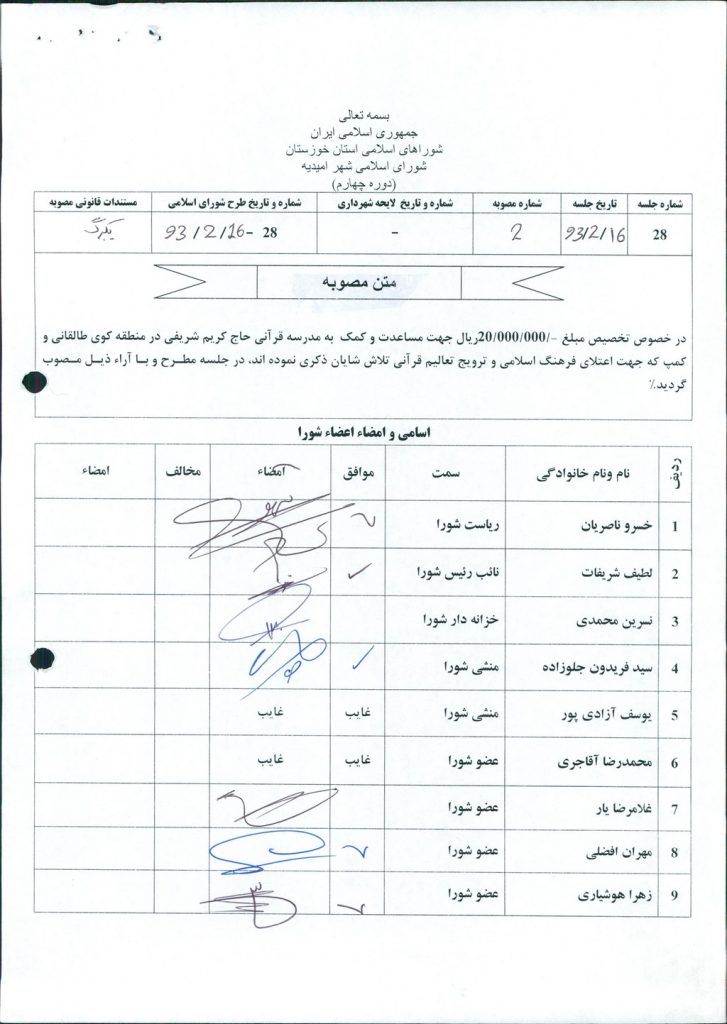 بسمه تعالی
جمهوری اسلامی ایران
شوراهای اسلامی استان خوزستان
شورای اسلامی شهر امیدیه
(دوره چهارم)
شماره جلسه تاریخ جلسه شماره مصوبه شماره و تاریخ لایحه شهرداری شماره و تاریخ طرح شورای اسلامی مستندات قانونی مصوبه
28 93/2/16 2 - 28 - 93/2/16
متن مصوبه
در خصوص تخصیص مبلغ -/20/000/000ریال جهت مساعدت و کمک به مدرسه قرآنی حاج کریم شریفی در منطقه کوی طالقانی و
کمپ که جهت اعتلای فرهنگ اسلامی و ترویج تعالیم قرآنی تلاش شایان ذکری نموده اند، در جلسه مطرح و با آراء ذیل مصوب
گردید.٪
اسامی و امضاء اعضاء شورا
ردیف نام ونام خانوادگی سمت موافق امضاء مخالف امضاء
1 خسرو ناصریان ریاست شورا
2 لطیف شریفات نائب رئیس شورا ✓
3 نسرین محمدی خزانه دار شورا
4 سید فریدون جلوزاده منشی شورا ✓
5 یوسف آزادی پور منشی شورا غایب غایب
6 محمدرضا آقاجری عضو شورا غایب غایب
7 غلامرضا یار عضو شورا
8 مهران افضلی عضو شورا
9 زهرا هوشیاری عضو شورا